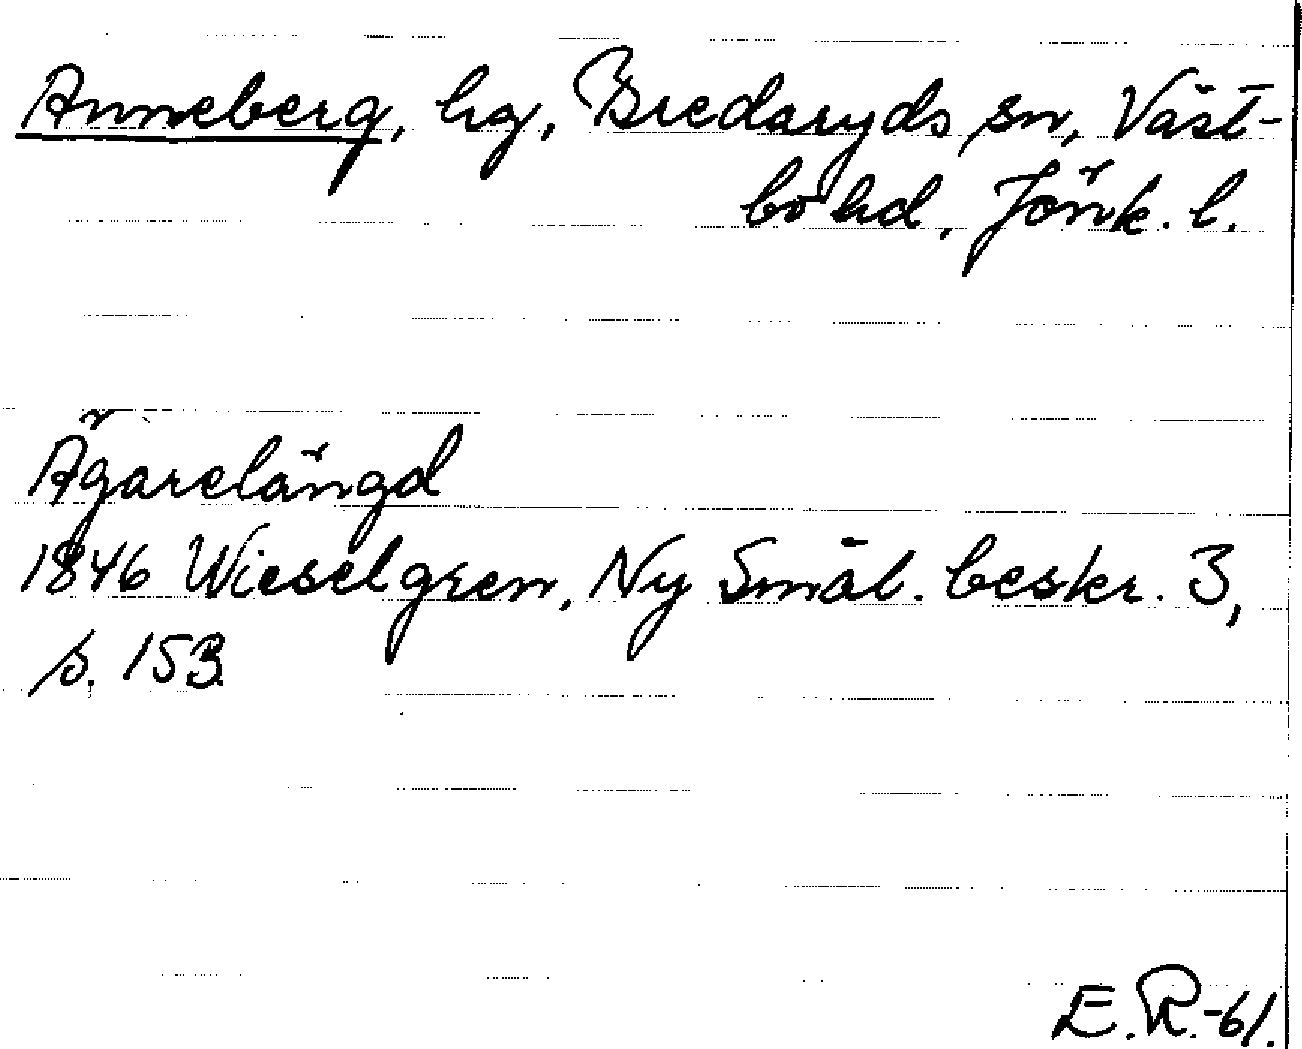 Anneberg, hg, Bredaryds sn, Väst-
bo hd, Jönk. l.
Ägarelängd
1846 Wieselgren, Ny Smål. beskr. 3,
s. 153.
E.R.-61.